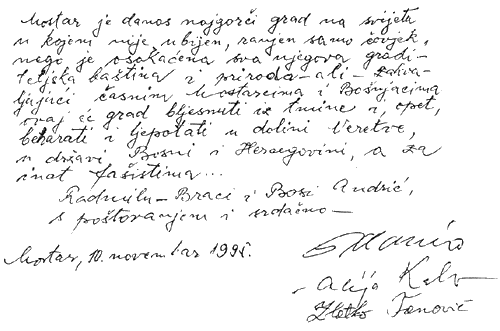 Mostar je danas najgorči grad na svijetu
u kojem nije ubijen, ranjen samo čovjek,
nego je osakaćena sva njegova gradi-
teljska baština i priroda – ali – zahva-
ljujući časnim Mostarcima i Bošnjacima
ovaj će grad bljesnuti iz tmine i, opet,
beharati i ljepotati u dolini Neretve,
u državi Bosni i Hercegovini, a za
inat fašistima...
Radmilu – Braci i Bosi Andrić,
s poštovanjem i srdačno –
Mostar, 10. novembar 1995.
Alija
Zlatko